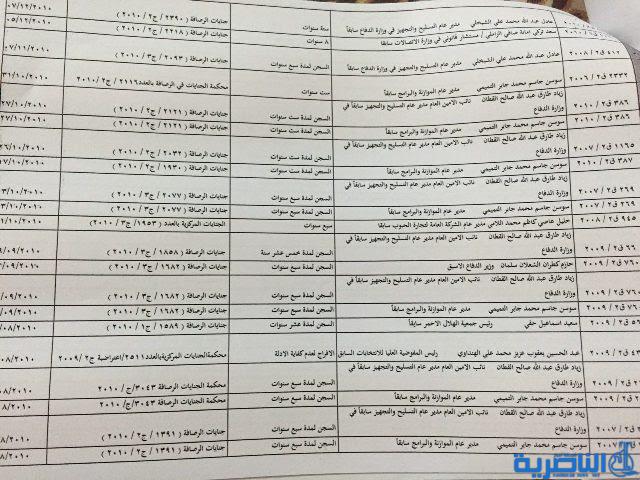 عادل عبد الله محمد علي الشيخلي مدير عام التسليح والتجهيز في وزارة الدفاع سابقاً ستة سنوات جنايات الرصافة ( ٢٣٩٠ / ج٢ / ٢٠١٠ ) ٠٧/١٢/٢٠١٠
سعد تركي امانة صافي الزاملي / مستشار قانوني في وزارة الاتصالات سابقاً ٨ سنوات جنايات الرصافة ( ٢٢١٨ / ج٢ / ٢٠١٠ ) ٠٥/١٢/٢٠١٠
٤١٢ ق٢ / ٢٠٠٨ عادل عبد الله محمد علي الشيخلي مدير عام التسليح والتجهيز في وزارة الدفاع سابقاً السجن لمدة سبع سنوات جنايات الرصافة ( ٢٠٩٣ / ج٣ / ٢٠١٠ ) /١١/٢٠١٠
٢٣٣٢ ق٢ / ٢٠٠٦ سوسن جاسم محمد جابر التميمي مدير عام الموازنة والبرامج سابقاً ست سنوات محكمة الجنايات في الرصافة بالعدد٢١١٦ ج٢/٢٠١٠ ٣١/١٠/٢٠١٠
٣٨٦ ق٢ / ٢٠١٠ زياد طارق عبد الله صالح القطان نائب الامين العام مدير عام التسليح والتجهيز سابقا في وزارة الدفاع السجن لمدة ست سنوات جنايات الرصافة ( ٢١٢١ / ج٢ / ٢٠١٠ ) ٢٧/١٠/٢٠١٠
٣٨٦ ق٢ / ٢٠١٠ سوسن جاسم محمد جابر التميمي مدير عام الموازنة والبرامج سابقاً السجن لمدة ست سنوات جنايات الرصافة ( ٢١٢١ / ج٢ / ٢٠١٠ ) ٢٧/١٠/٢٠١٠
١١٦٥ ق٢ / ٢٠٠٧ زياد طارق عبد الله صالح القطان نائب الامين العام مدير عام التسليح والتجهيز سابقاً في وزارة الدفاع السجن لمدة ست سنوات جنايات الرصافة ( ٢٠٣٢ / ج٢ / ٢٠١٠ ) ٢٦/١٠/٢٠١٠
٣٨٧ ق٢ / ٢٠١٠ سوسن جاسم محمد جابر التميمي مدير عام الموازنة والبرامج سابقاً السجن لمدة ست سنوات جنايات الرصافة ( ١٩٣٠ / ج٢ / ٢٠١٠ ) ١٧/١٠/٢٠١٠
٢٦٩ ق٢ / ٢٠٠٧ زياد طارق عبد الله صالح القطان نائب الامين العام مدير عام التسليح والتجهيز سابقاً في وزارة الدفاع السجن لمدة سبع سنوات جنايات الرصافة ( ٢٠٧٧ / ج٣ / ٢٠١٠ ) /١٠/٢٠١٠
٢٦٩ ق٢ / ٢٠٠٧ سوسن جاسم محمد جابر التميمي مدير عام الموازنة والبرامج سابقاً السجن لمدة سبع سنوات جنايات الرصافة ( ٢٠٧٧ / ج٣ / ٢٠١٠ ) /١٠/٢٠١٠
٩٤٥ ق٢ / ٢٠٠٨ خليل عاصي كاظم محمد اللامي مدير عام الشركة العامة لتجارة الحبوب سابقاً سبع سنوات الجنايات المركزية بالعدد ( ١٩٥٣ / ج٣ / ٢٠١٠ ) /١٠/٢٠١٠
٦٦ ق٢ / ٢٠٠٩ زياد طارق عبد الله صالح القطان نائب الامين العام مدير عام التسليح والتجهيز سابقاً في وزارة الدفاع السجن لمدة خمس عشر سنة جنايات الرصافة ( ١٨٥٨ / ج٣ / ٢٠١٠ ) /٠٩/٢٠١٠
٧٦٠ ق٢ / ٢٠٠٩ حازم كطران الشعلان سلمان وزير الدفاع الاسبق السجن لمدة سبع سنوات جنايات الرصافة ( ١٦٨٢ / ج٢ / ٢٠١٠ ) /٠٩/٢٠١٠
٧٦٠ ق٢ / ٢٠٠٩ زياد طارق عبد الله صالح القطان نائب الامين العام مدير عام التسليح والتجهيز سابقاً في وزارة الدفاع السجن لمدة سبع سنوات جنايات الرصافة ( ١٦٨٢ / ج٢ / ٢٠١٠ ) /٠٩/٢٠١٠
٧٦٠ ق٢ / ٢٠٠٩ سوسن جاسم محمد جابر التميمي مدير عام الموازنة والبرامج سابقاً السجن لمدة سبع سنوات جنايات الرصافة ( ١٦٨٢ / ج٢ / ٢٠١٠ ) /٠٩/٢٠١٠
ق٢ / ٢٠٠٩ سعيد اسماعيل حقي رئيس جمعية الهلال الاحمر سابقاً السجن لمدة عشر سنوات جنايات الرصافة ( ١٥٨٩ / ج١ / ٢٠١٠ ) /٠٨/٢٠١٠
ق٢ / ٢٠٠٩ عبد الحسين يعقوب عزيز محمد علي الهنداوي رئيس المفوضية العليا للانتخابات السابق الافراج لعدم كفاية الادلة محكمة الجنايات المركزية بالعدد٢٥١١/اعتراضية ج٢/٢٠٠٩ /٠٨/٢٠١٠
ق٢ / ٢٠٠٩ زياد طارق عبد الله صالح القطان نائب الامين العام مدير عام التسليح والتجهيز سابقاً في وزارة الدفاع السجن لمدة سبع سنوات محكمة الجنايات الرصافة ٣٠٤٣/ج/٢٠١٠ /٠٨/٢٠١٠
ق٢ / ٢٠٠٩ سوسن جاسم محمد جابر التميمي مدير عام الموازنة والبرامج سابقاً السجن لمدة سبع سنوات محكمة الجنايات الرصافة ٣٠٤٣/ج/٢٠١٠ /٠٨/٢٠١٠
ق٢ / ٢٠٠٧ زياد طارق عبد الله صالح القطان نائب الامين العام مدير عام التسليح والتجهيز سابقاً في وزارة الدفاع السجن لمدة سبع سنوات جنايات الرصافة ( ١٣٩١ / ج٢ / ٢٠١٠ ) /٢٠١٠
ق٢ / ٢٠٠٧ سوسن جاسم محمد جابر التميمي مدير عام الموازنة والبرامج سابقاً السجن لمدة سبع سنوات جنايات الرصافة ( ١٣٩١ / ج٢ / ٢٠١٠ ) /٢٠١٠
الناصرية